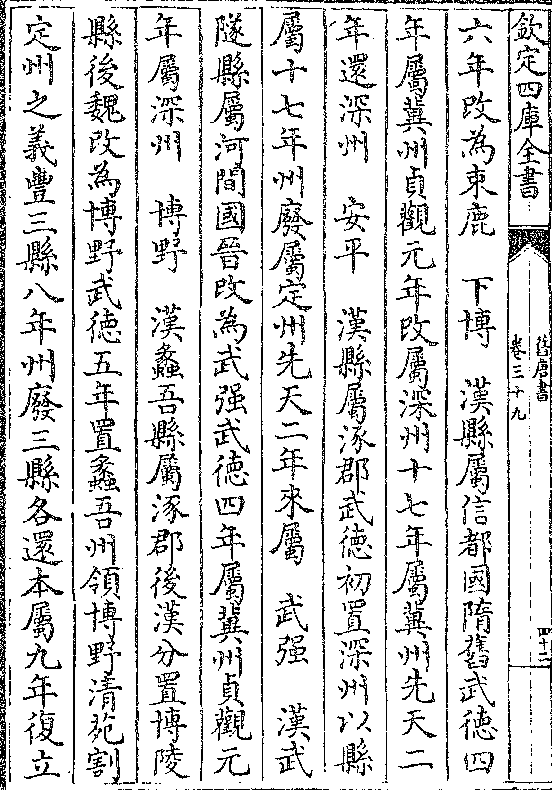 欽定四庫全書
舊唐書
卷三十九
四十三
六年改為束鹿　下博　漢縣屬信都國隋舊武德四
年屬冀州貞觀元年改屬深州十七年屬冀州先天二
年還深州　安平　漢縣屬涿郡武德初置深州以縣
屬十七年州廢屬定州先天二年來屬　武强　漢武
隧縣屬河間國晉改為武强武德四年屬冀州貞觀元
年屬深州　博野　漢蠡吾縣屬涿郡後漢分置博陵
縣後魏改為博野武德五年置蠡吾州領博野清苑割
定州之義豐三縣八年州廢三縣各還本屬九年復立